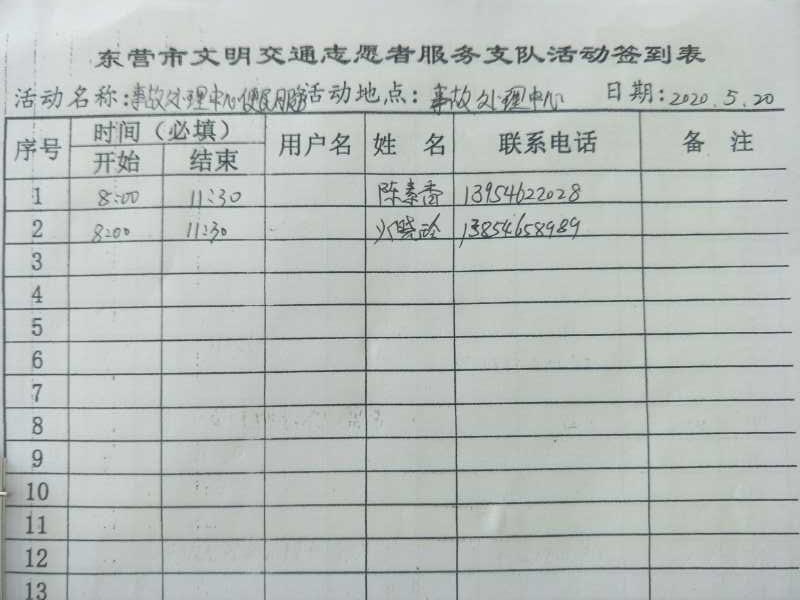 东营市文明交通志愿者服务支队活动签到表
活动名称:事故处理中心便民服务 活动地点:事故处理中心 日期:2020.5.20
序号 时间(必填) 用户名 姓名 联系电话 备注
开始 结束
1 8:00 11:30 陈素香 13954622028
2 8:00 11:30 晓玲 13854658989
3
4
5
6
7
8
9
10
11
12
13